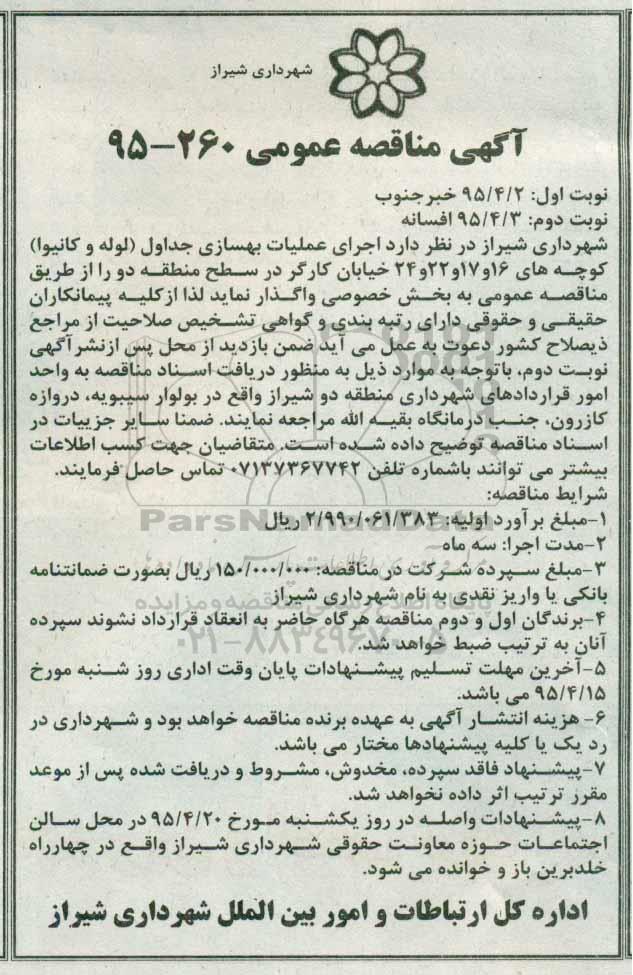 شهرداری شیراز
آگهی مناقصه عمومی ۲۶۰-۹۵
نوبت اول: ۹۵/۴/۲ خبرجنوب
نوبت دوم: ۹۵/۴/۳ افسانه
شهرداری شیراز در نظر دارد اجرای عملیات بهسازی جداول (لوله و کانیوا)
کوچه های ۱۶و۱۷و۲۲و۲۴ خیابان کارگر در سطح منطقه دو را از طریق
مناقصه عمومی به بخش خصوصی واگذار نماید لذا ازکلیه پیمانکاران
حقیقی و حقوقی دارای رتبه بندی و گواهی تشخیص صلاحیت از مراجع
ذیصلاح کشور دعوت به عمل می آید ضمن بازدید از محل پس ازنشرآگهی
نوبت دوم، باتوجه به موارد ذیل به منظور دریافت اسناد مناقصه به واحد
امور قراردادهای شهرداری منطقه دو شیراز واقع در بولوار سیبویه، دروازه
کازرون، جنب درمانگاه بقیه الله مراجعه نمایند. ضمنا سایر جزییات در
اسناد مناقصه توضیح داده شده است. متقاضیان جهت کسب اطلاعات
بیشتر می توانند باشماره تلفن ۰۷۱۳۷۳۶۷۷۴۲ تماس حاصل فرمایند.
شرایط مناقصه:
۱-مبلغ برآورد اولیه: ۲/۹۹۰/۰۶۱/۳۸۳ ریال
ParsNamadData
۲-مدت اجرا: سه ماه
۳-مبلغ سپرده شرکت در مناقصه: ۱۵۰/۰۰۰/۰۰۰ ریال بصورت ضمانتنامه
بانکی یا واریز نقدی به نام شهرداری شیراز
۴-برندگان اول و دوم مناقصه هرگاه حاضر به انعقاد قرارداد نشوند سپرده
آنان به ترتیب ضبط خواهد شد.
۰۲۱-۸۸۳۴۹۶۷۰-۵
۵-آخرین مهلت تسلیم پیشنهادات پایان وقت اداری روز شنبه مورخ
۹۵/۴/۱۵ می باشد.
۶- هزینه انتشار آگهی به عهده برنده مناقصه خواهد بود و شهرداری در
رد یک یا کلیه پیشنهادها مختار می باشد.
۷-پیشنهاد فاقد سپرده، مخدوش، مشروط و دریافت شده پس از موعد
مقرر ترتیب اثر داده نخواهد شد.
۸-پیشنهادات واصله در روز یکشنبه مورخ ۹۵/۴/۲۰ در محل سالن
اجتماعات حوزه معاونت حقوقی شهرداری شیراز واقع در چهارراه
خلدبرین باز و خوانده می شود.
اداره کل ارتباطات و امور بین الملل شهرداری شیراز